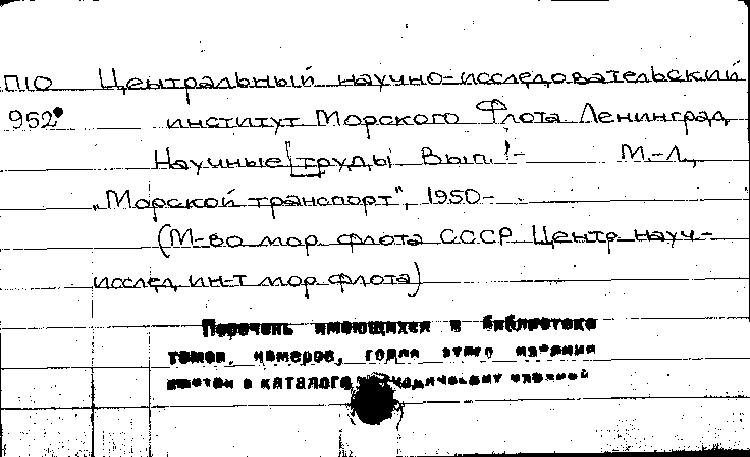 П10 Центральный научно-исследовательский
952 институт Морского Флота Ленинград
Научные [труды] Вып. 1- М.-Л.,
„Морской транспорт", 1950-
(М-во мор. флота СССР. Центр. науч-
исслед. ин-т мор. флота)
Перечень имеющихся в библиотеке
томов, номеров, годов этого издания
имеется в каталоге периодических изданий